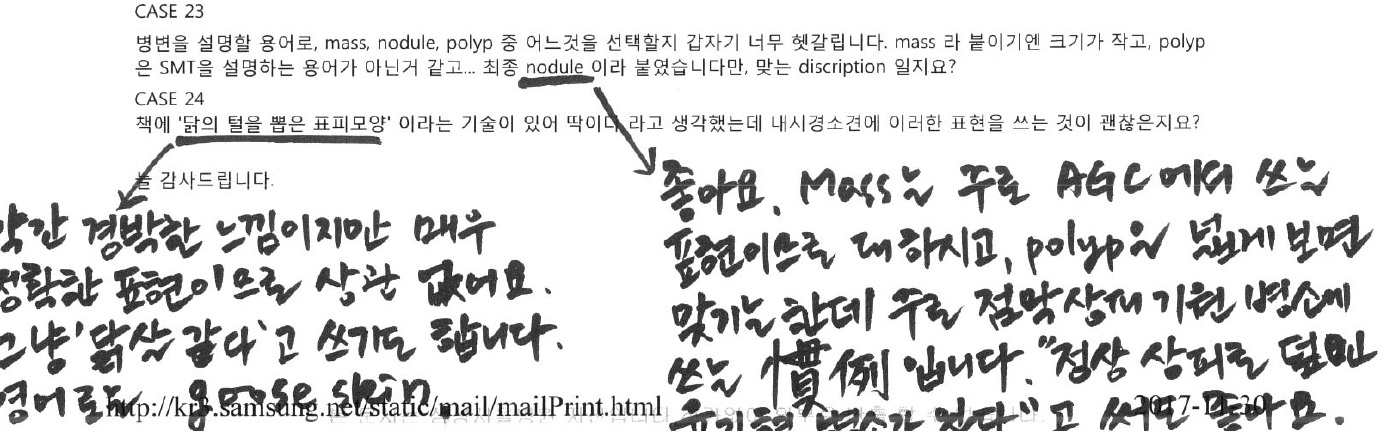 CASE 23
병변을 설명할 용어로, mass, nodule, polyp 중 어느것을 선택할지 갑자기 너무 헷갈립니다. mass 라 붙이기엔 크기가 작고, polyp
은 SMT을 설명하는 용어가 아닌거 같고... 최종 nodule 이라 붙였습니다만, 맞는 discription 일지요?
CASE 24
책에 '닭의 털을 뽑은 표피모양' 이라는 기술이 있어 딱이다 라고 생각했는데 내시경소견에 이러한 표현을 쓰는 것이 괜찮은지요?
늘 감사드립니다.
약간 경박한 느낌이지만 매우
정확한 표현이므로 상관 없어요.
그냥 '닭살 같다'고 쓰기도 합니다.
영어로는 goose skin
좋아요. Mass는 주로 AGC에서 쓰는
표현이므로 대하시고, polyp은 넓게 보면
맞기는 한데 주로 점막상피 기원 병소에
쓰는 慣例입니다. "정상 상피로 덮인
융기형 병소가 있다"고 써도 좋아요.
http://kr3.samsung.net/static/mail/mailPrint.html
2017-11-30